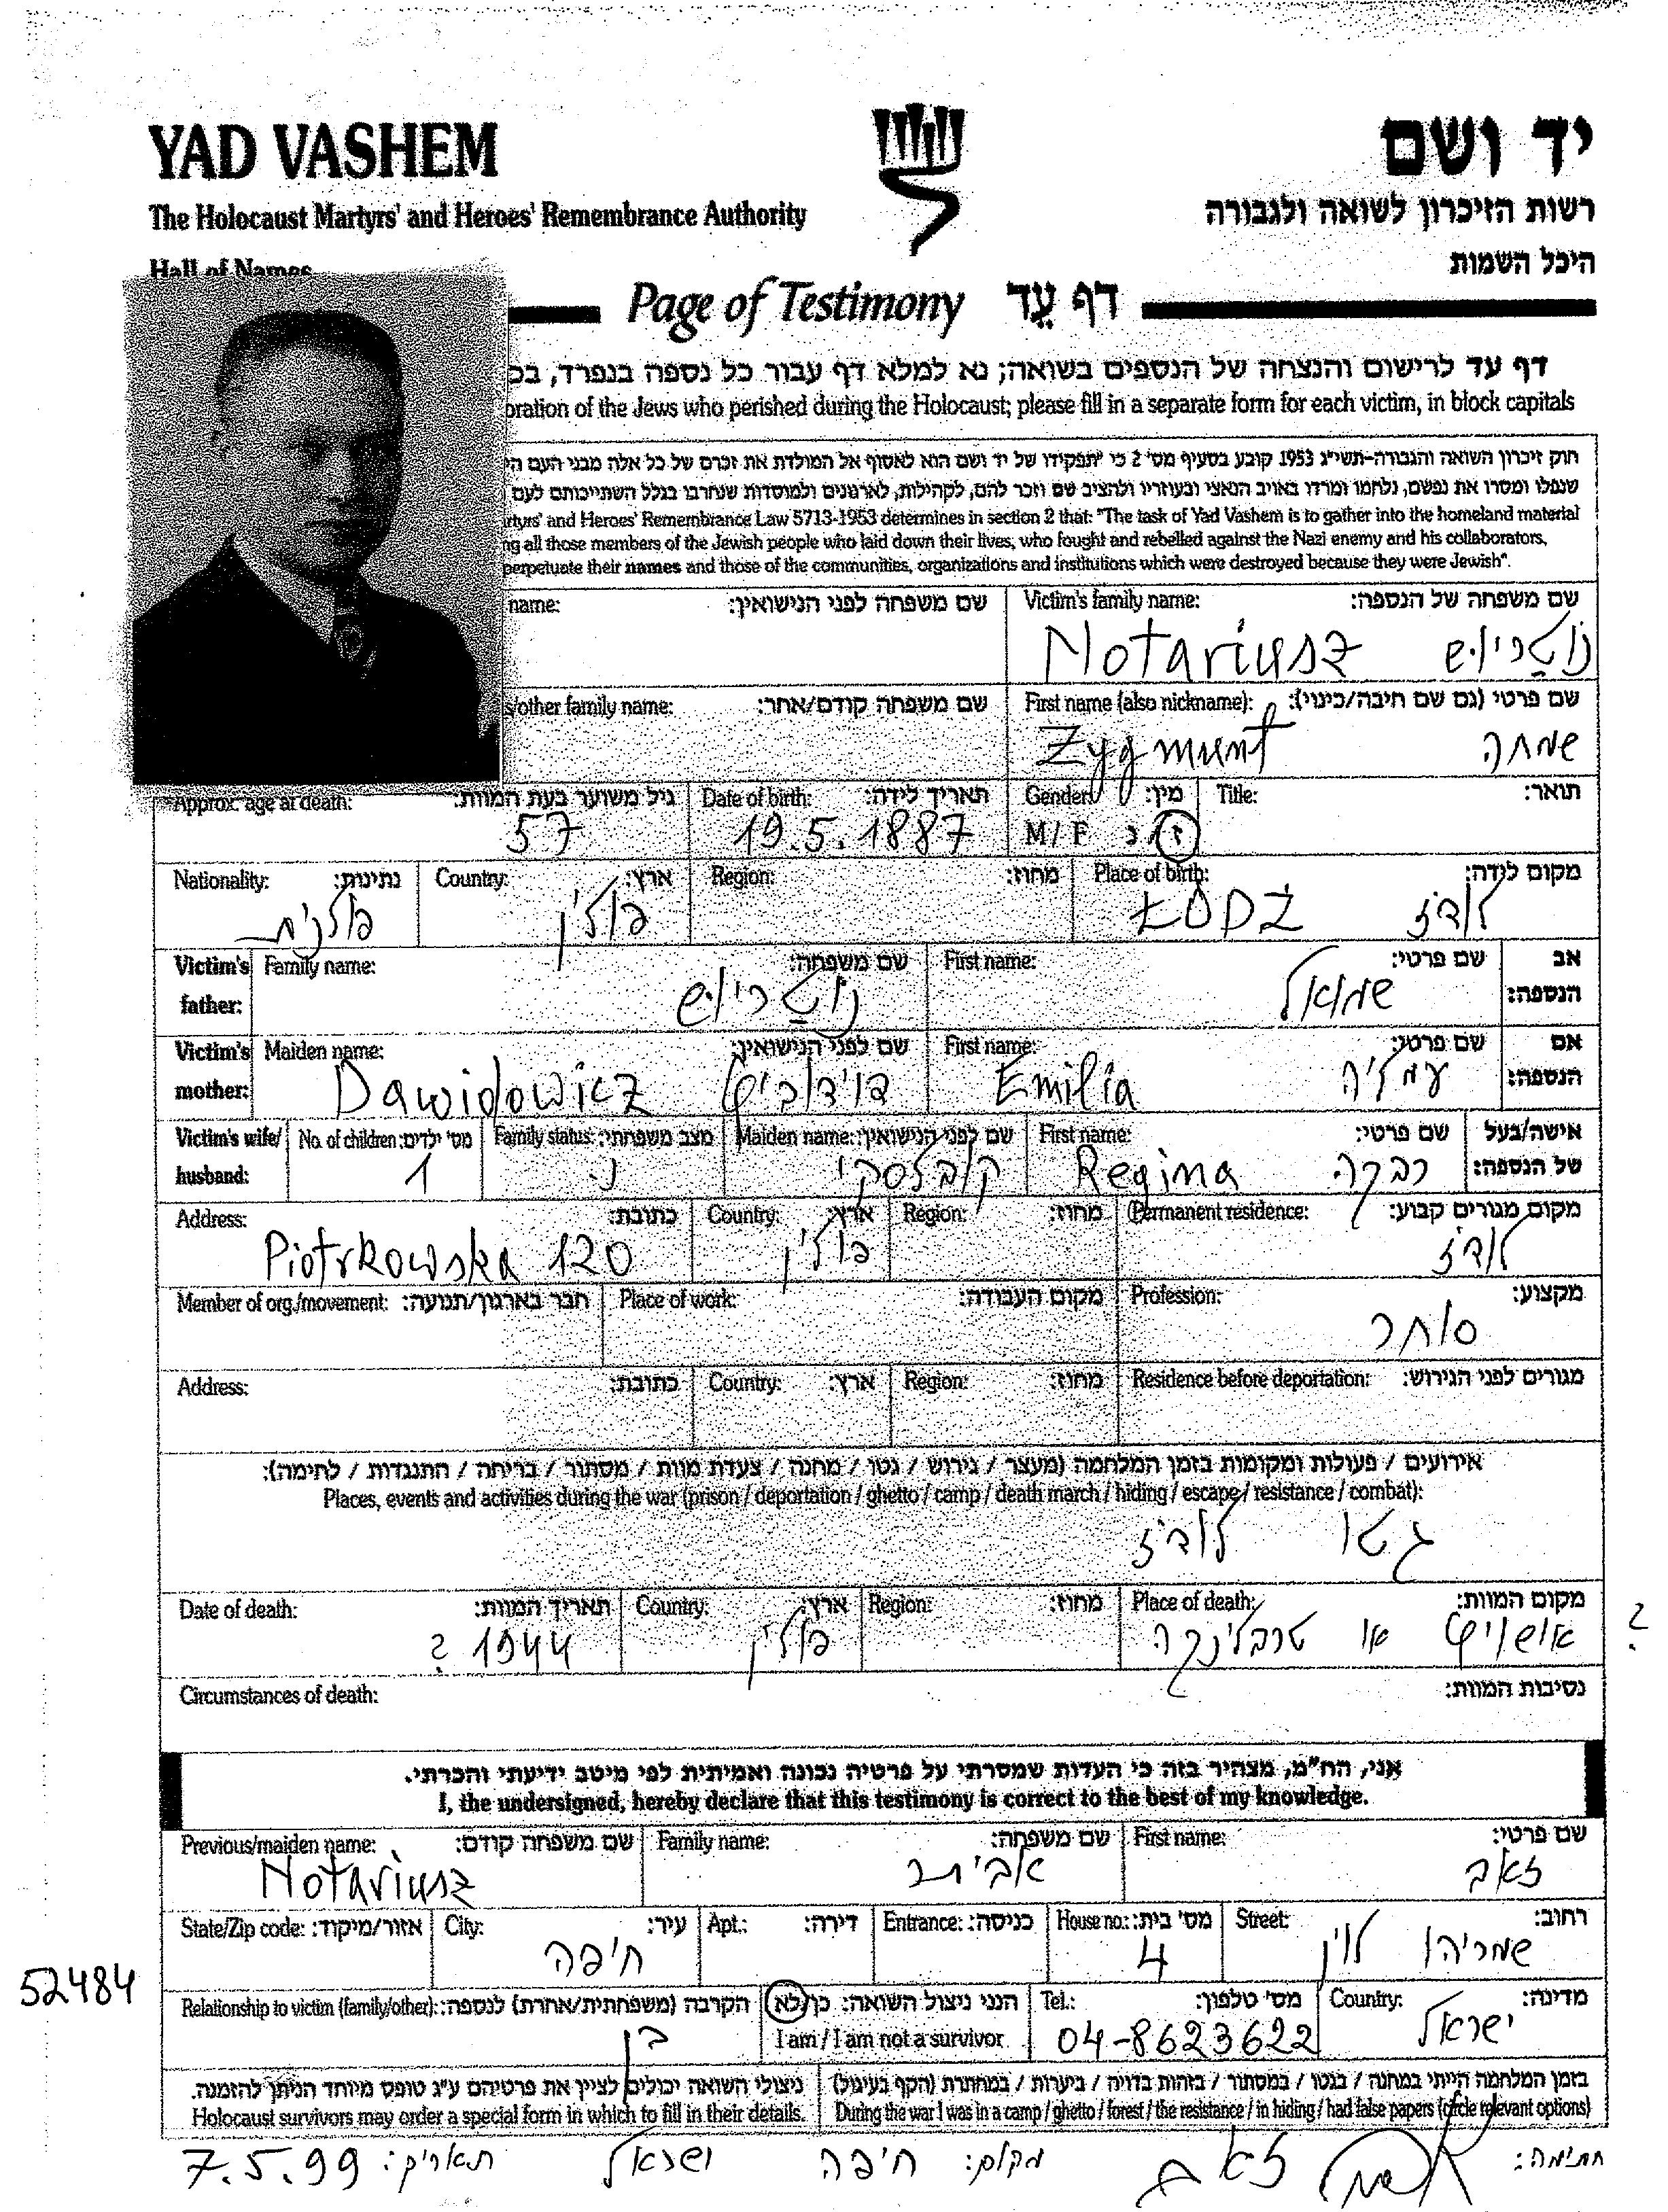 YAD VASHEM יד ושם
The Holocaust Martyrs' and Heroes' Remembrance Authority רשות הזיכרון לשואה ולגבורה
Hall of Names היכל השמות
Page of Testimony דף עֵד
דף עד לרישום והנצחה של הנספים בשואה; נא למלא דף עבור כל נספה בנפרד, בכ
oration of the Jews who perished during the Holocaust; please fill in a separate form for each victim, in block capitals
חוק זיכרון השואה והגבורה-תשי"ג 1953 קובע בסעיף מס' 2 כי "תפקידו של יד ושם הוא לאסוף אל המולדת את זכרם של כל אלה מבני העם הי
שנפלו ומסרו את נפשם, נלחמו ומרדו באויב הנאצי ובעוזריו ולהציב שם וזכר להם, לקהילות, לארגונים ולמוסדות שנחרבו בגלל השתייכותם לעם
rtyrs' and Heroes' Remembrance Law 5713-1953 determines in section 2 that: "The task of Yad Vashem is to gather into the homeland material
ng all those members of the Jewish people who laid down their lives, who fought and rebelled against the Nazi enemy and his collaborators,
perpetuate their names and those of the communities, organizations and institutions which were destroyed because they were Jewish".
name: שם משפחה לפני הנישואין: Victim's family name: שם משפחה של הנספה:
Notariusz נוטריוש
s/other family name: שם משפחה קודם/אחר: First name (also nickname): שם פרטי (גם שם חיבה/כינוי):
Zygmunt שמחה
Approx. age at death: גיל משוער בעת המוות: Date of birth: תאריך לידה: Gender: מין: Title: תואר:
57 19.5.1887 M/F ז/נ
Nationality: נתינות: Country: ארץ: Region: מחוז: Place of birth: מקום לידה:
פולנית פולין ŁÓDŹ לודז'
Victim's father: Family name: שם משפחה: First name: שם פרטי: אב הנספה:
נוטריוש שמואל
Victim's mother: Maiden name: שם לפני הנישואין: First name: שם פרטי: אם הנספה:
Dawidowicz דוידוביץ Emilia עמליה
Victim's wife/husband: No. of children: מס' ילדים: Family status: מצב משפחתי: Maiden name: שם לפני הנישואין: First name: שם פרטי: אישה/בעל של הנספה:
1 נ. קובלסקי Regina רבקה
Address: כתובת: Country: ארץ: Region: מחוז: Permanent residence: מקום מגורים קבוע:
Piotrkowska 120 פולין לודז'
Member of org./movement: חבר בארגון/תנועה: Place of work: מקום העבודה: Profession: מקצוע:
סוחר
Address: כתובת: Country: ארץ: Region: מחוז: Residence before deportation: מגורים לפני הגירוש:
אירועים / פעולות ומקומות בזמן המלחמה (מעצר / גירוש / גטו / מחנה / צעדת מוות / מסתור / בריחה / התנגדות / לחימה):
Places, events and activities during the war (prison / deportation / ghetto / camp / death march / hiding / escape / resistance / combat):
גטו לודז'
Date of death: תאריך המוות: Country: ארץ: Region: מחוז: Place of death: מקום המוות:
1944 ? פולין אושויץ או טרבלינקה ?
Circumstances of death: נסיבות המוות:
אני, הח"מ, מצהיר בזה כי העדות שמסרתי על פרטיה נכונה ואמיתית לפי מיטב ידיעתי והכרתי.
I, the undersigned, hereby declare that this testimony is correct to the best of my knowledge.
Previous/maiden name: שם משפחה קודם: Family name: שם משפחה: First name: שם פרטי:
Notariusz אביתר זאב
State/Zip code: אזור/מיקוד: City: עיר: Apt.: דירה: Entrance: כניסה: House no.: מס' בית: Street: רחוב:
חיפה 4 שמריהו לוין
52484
Relationship to victim (family/other): הקרבה (משפחתית/אחרת) לנספה: הנני ניצול השואה: כן/לא Tel.: מס' טלפון: Country: מדינה:
בן I am / I am not a survivor 04-8623622 ישראל
ניצולי השואה יכולים לציין את פרטיהם ע"ג טופס מיוחד הניתן להזמנה. בזמן המלחמה הייתי במחנה / בגטו / במסתור / בזהות בדויה / ביערות / במחתרת (הקף בעיגול)
Holocaust survivors may order a special form in which to fill in their details. During the war I was in a camp / ghetto / forest / the resistance / in hiding / had false papers (circle relevant options)
חתימה: זאב מקום: חיפה ישראל תאריך: 7.5.99